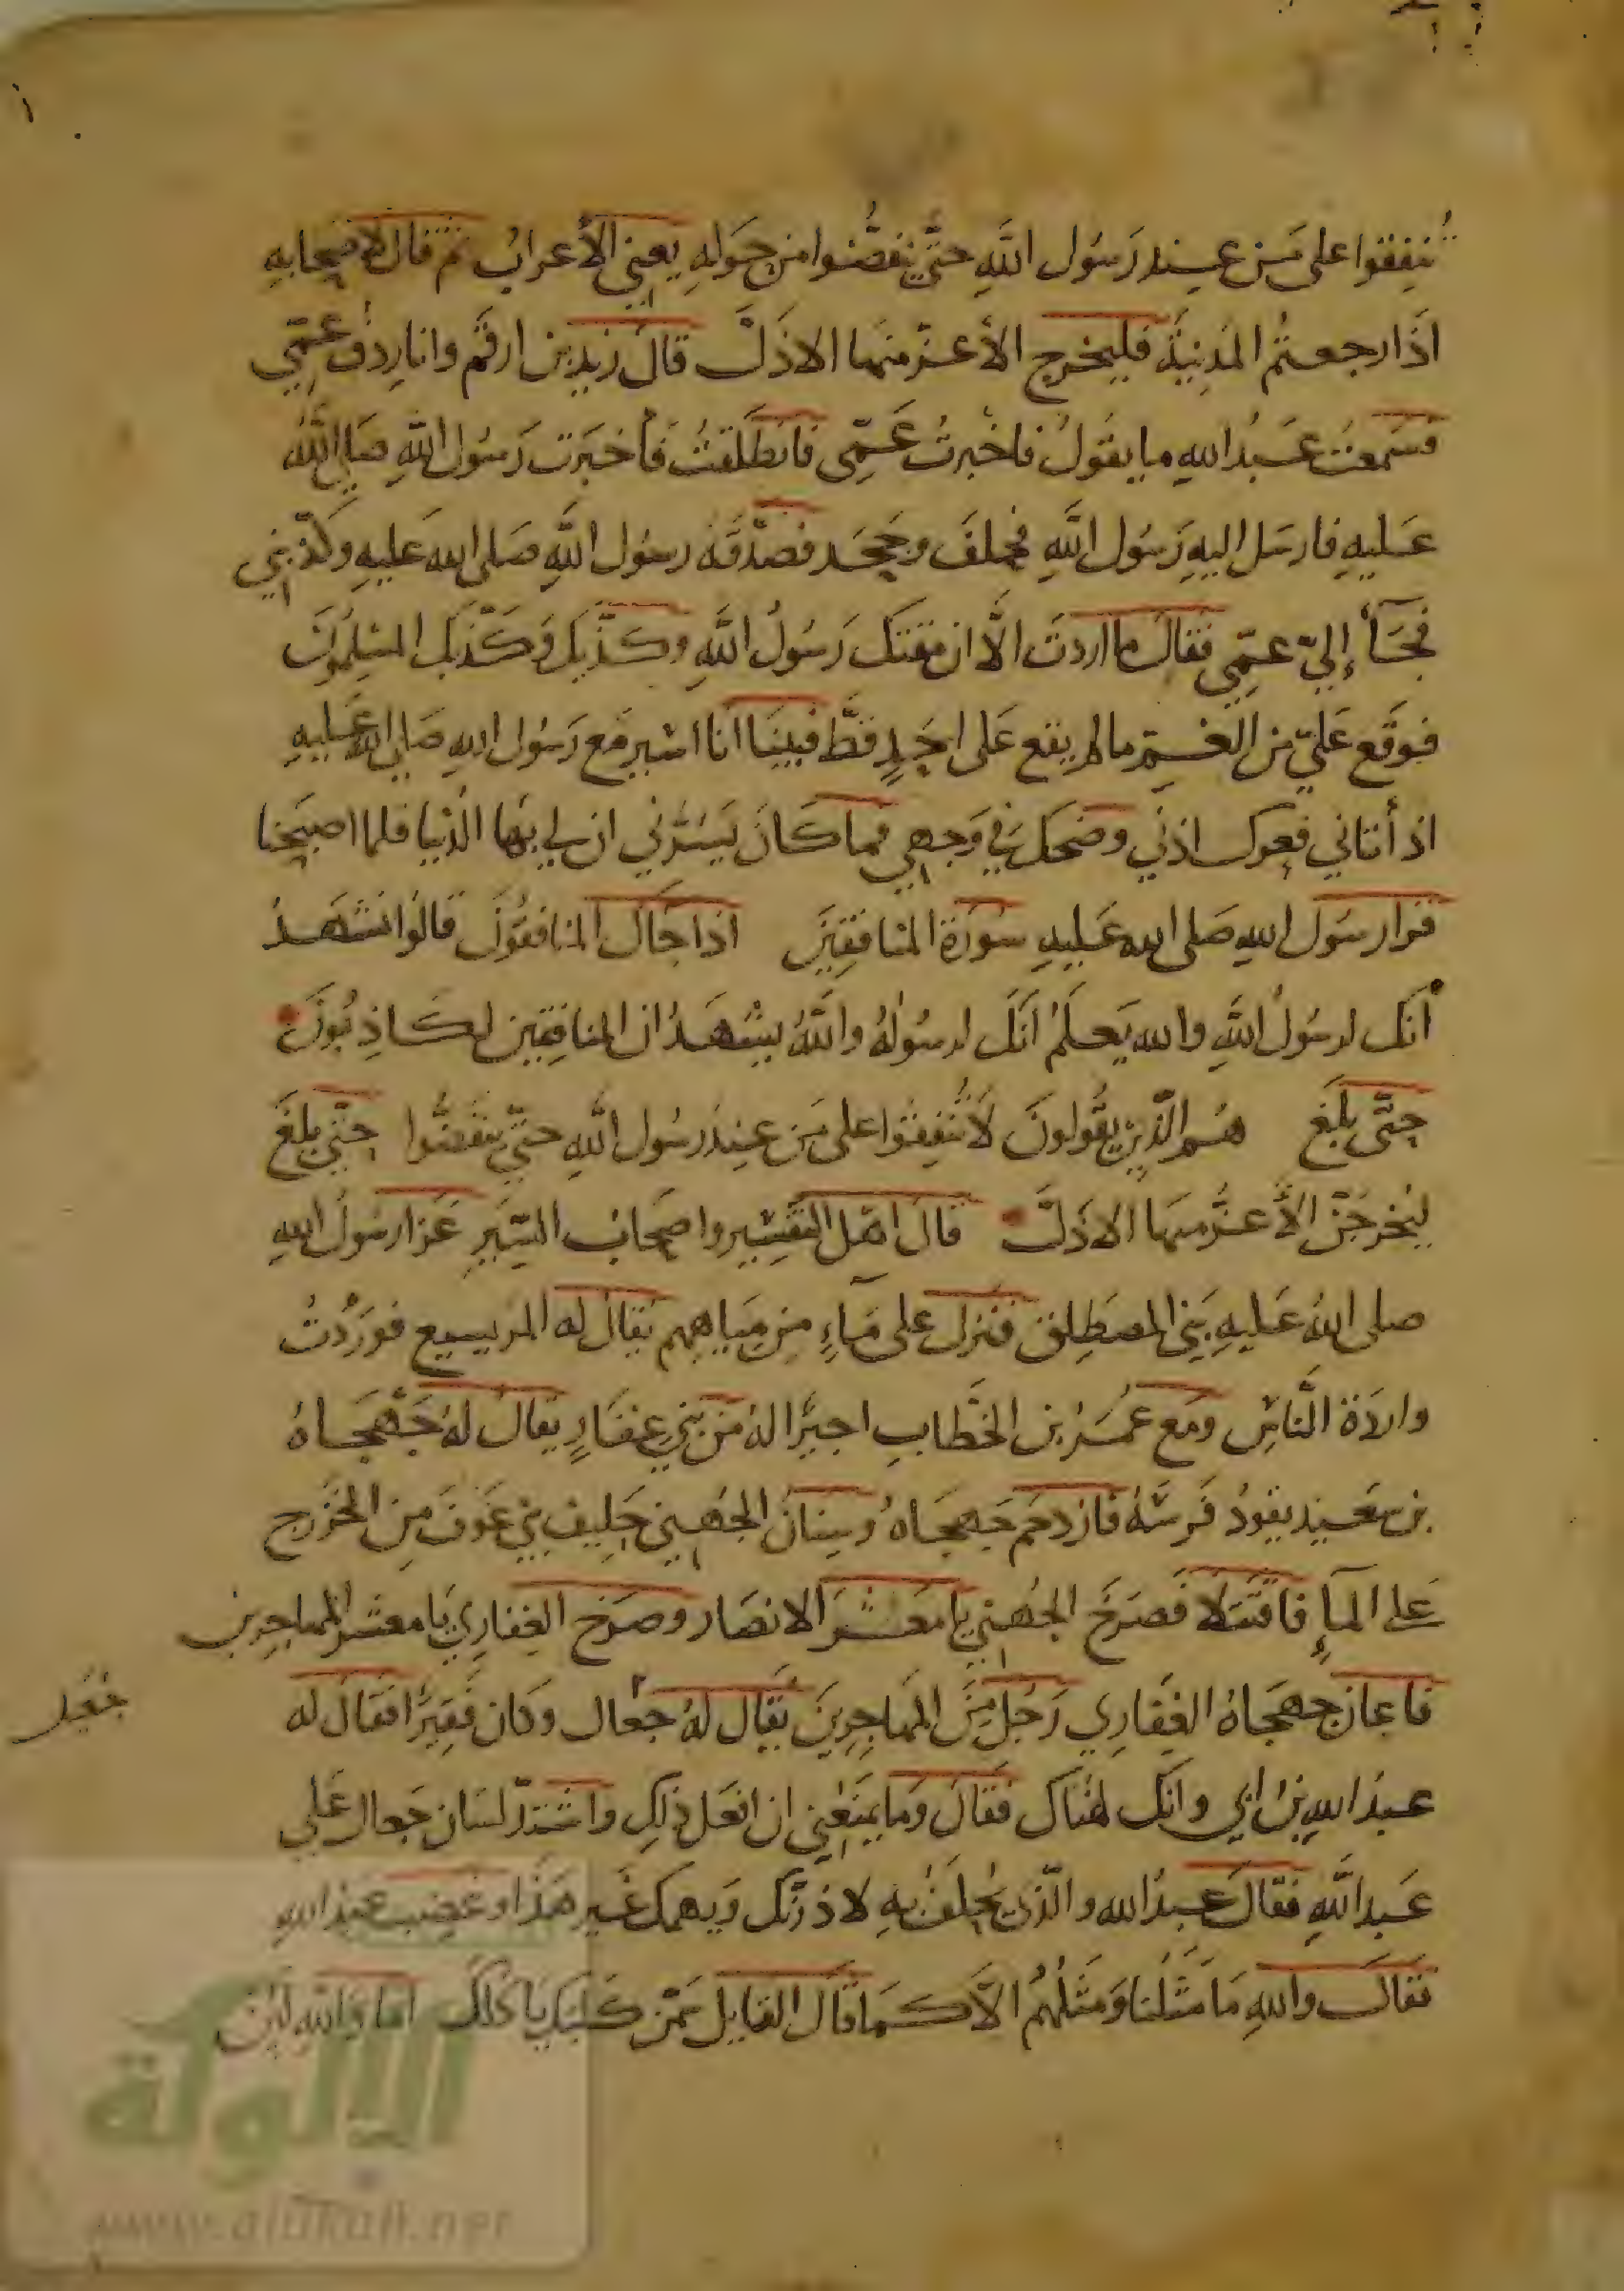 تنفقوا على من عند رسول الله حتى ينفضوا من حوله يعني الأعراب ثم قال لاصحابه
اذا رجعتم المدينة فليخرج الأعز منها الاذل قال زيد بن ارقم وانا ردف عمي
فسمعت عبد الله ما يقول فاخبرت عمي فانطلقت فأخبرت رسول الله صلى الله
عليه فارسل اليه رسول الله فحلف وجحد فصدقه رسول الله صلى الله عليه وكذبني
فجآء إلي عمي فقال ما اردت الا ان مقتك رسول الله وكذبك وكذبك المسلمون
فوقع علي من الغم ما لم يقع على احد قط فبينا انا اسير مع رسول الله صلى الله عليه
اذ أتاني فعرك اذني وضحك في وجهي فما كان يسرني ان لي بها الدنيا فلما اصبحنا
قرا رسول الله صلى الله عليه سورة المنافقين اذا جاك المنافقون قالوا نشهد
انك لرسول الله والله يعلم انك لرسوله والله يشهد ان المنافقين لكاذبون
حتى بلغ هم الذين يقولون لا تنفقوا على من عند رسول الله حتى ينفضوا حتى بلغ
ليخرجن الأعز منها الاذل قال اهل التفسير واصحاب السير غزا رسول الله
صلى الله عليه بني المصطلق فنزل على مآء من مياههم يقال له المريسيع فوردت
واردة الناس ومع عمر بن الخطاب اجيرا له من بني غفار يقال له جهجاه
بن سعيد يقود فرسه فازدحم جهجاه وسنان الجهني حليف بني عوف من الخزرج
على المآء فاقتتلا فصرخ الجهني يا معشر الانصار وصرخ الغفاري يا معشر المهاجرين
فاعان جهجاه الغفاري رجل من المهاجرين يقال له جعال وكان فقيرا فقال له
جعيل
عبد الله بن ابي وانك لهناك فقال وما يمنعني ان افعل ذلك واشتد لسان جعال على
عبد الله فقال عبد الله والذي يحلف به لاذرنك ويهمك غير هذا وغضب عبد الله
فقال والله ما مثلنا ومثلهم الا كما قال القايل سمن كلبك ياكلك اما والله لين
الألوكة
www.alukah.net